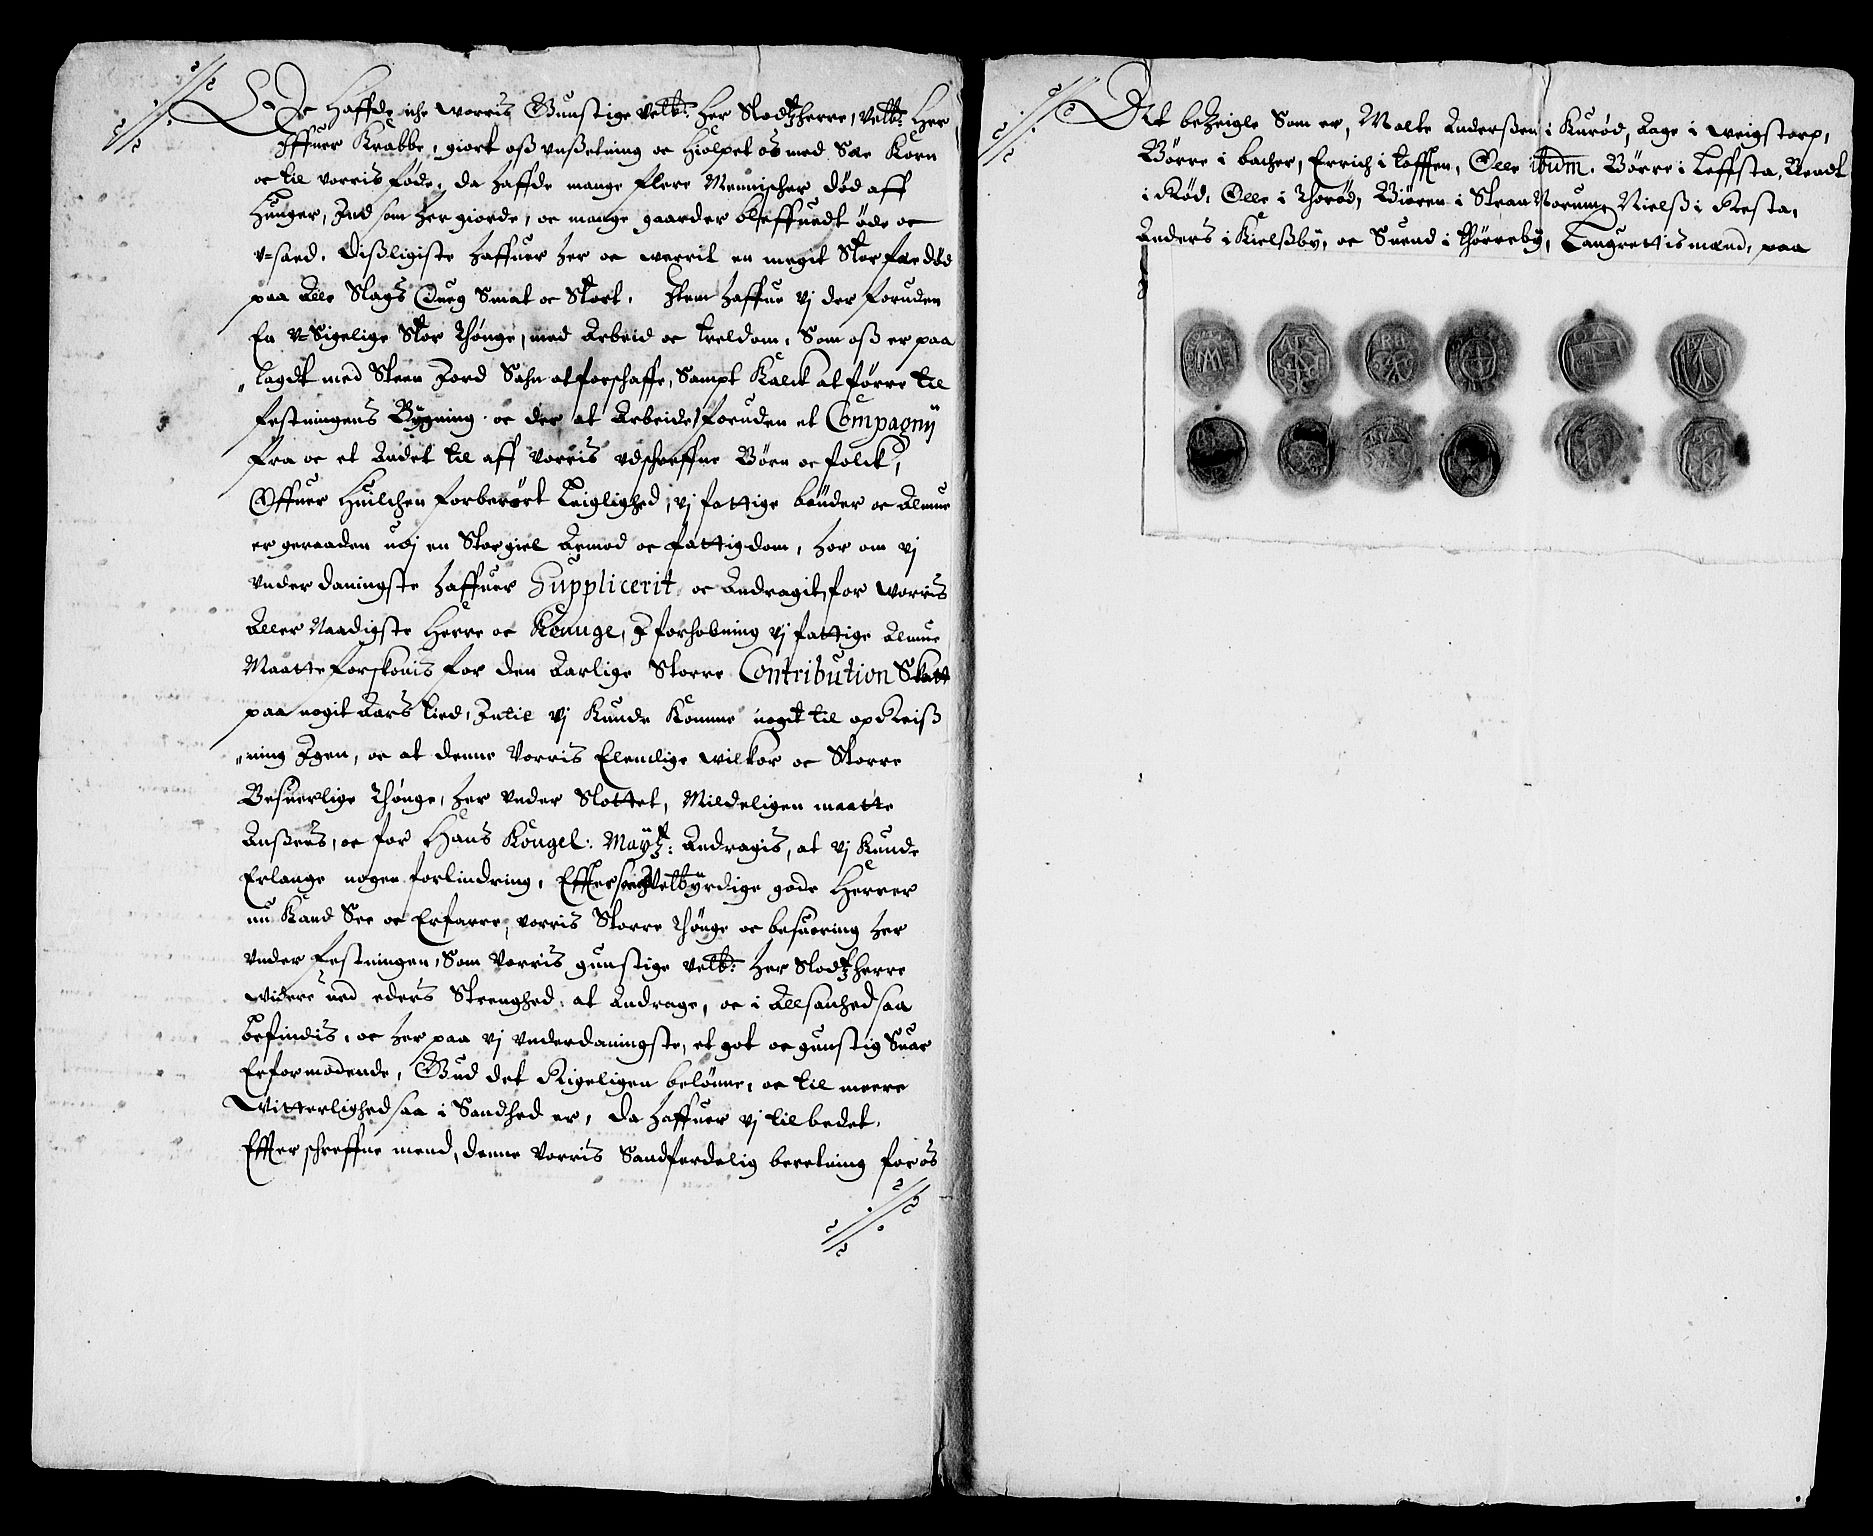 Haffde iche worris Gunstige velb: Her Slodtzherre, velb: Her
Iffuer Krabbe, giort oß undßetning oc hiolpet os med Sæe Korn
oc til vorris føde, da haffde mange flere Mennischer død aff
Hunger, End som her giorde, oc mange gaarder bleffuedt øde oc
v-saed. Dißligiste haffuer her oc werrit en megit Stor fæe død
paa Alle Slags Queg Smat oc Stort. Item haffue vj der foruden
En v-Sigelige Stor Thønge, med Arbeid oc treldom, Som oß er paa
lagdt med Steen Jord Sahn at forschaffe, Sampt Kalck at førre til
festningens Bygning oc der at Arbeide, foruden et Compagnij
fra oc et Andet til aff vorris udschreffne Børn oc folck,
Offuer huilchen forberørt Leiglighed, vj fattige bønder oc Almue
er geraaden udj en Stor giel Armod oc fattigdom, her om vj
underdaningste haffuer Supplicerit, oc Andragit for worris
Aller Naadigste Herre oc Konnge, I forhobning vj fattige Almue
Maatte forskonis for den Aarlige Storre Contribution Skatt
paa nogit Aars tied, Intil vj Kunde Komme nogit til opReiß
ning Igen, oc at denne Vorris Elendige wilkor oc Storre
Besuerlige Thønge, her under Slottet, Mildeligen maatte
Anßees, oc for Hans Kongel: Maytz: Andragis, at vj Kunde
Erlange nogen forlindring, Efftersom Velbyrdige gode Herrer
nu Kand See oc Erfarre, vorris Storre Thønge oc besuering her
under festningen, Som Vorris gunstige velb: her Slodtzherre
widere ved eders Strenghed, at Andrage, oc i All sanhed saa
befindis, oc her paa vj underdaningste, et got oc gunstig Suar
Erformodende, Gud det Rigeligen belønne, oc til meere
Vitterlighed saa i Sandhed er, da haffuer vj tilbedet,
Effterschreffne mend, denne Vorris Sandferdelig beretning for os
At beZeigle Som er, Malte Anderßen i Kurød, Aage i weigstorp,
Børre i bacher, Errich i tofften, Olle ibidm. Børre i Leffsta, Bendt
i Rød, Olle i Thorød, Biøren i Stran Norum, Nielß i Resta,
Anders i Kielßby, oc Suend i thørreby, Laugrettismænd, paa